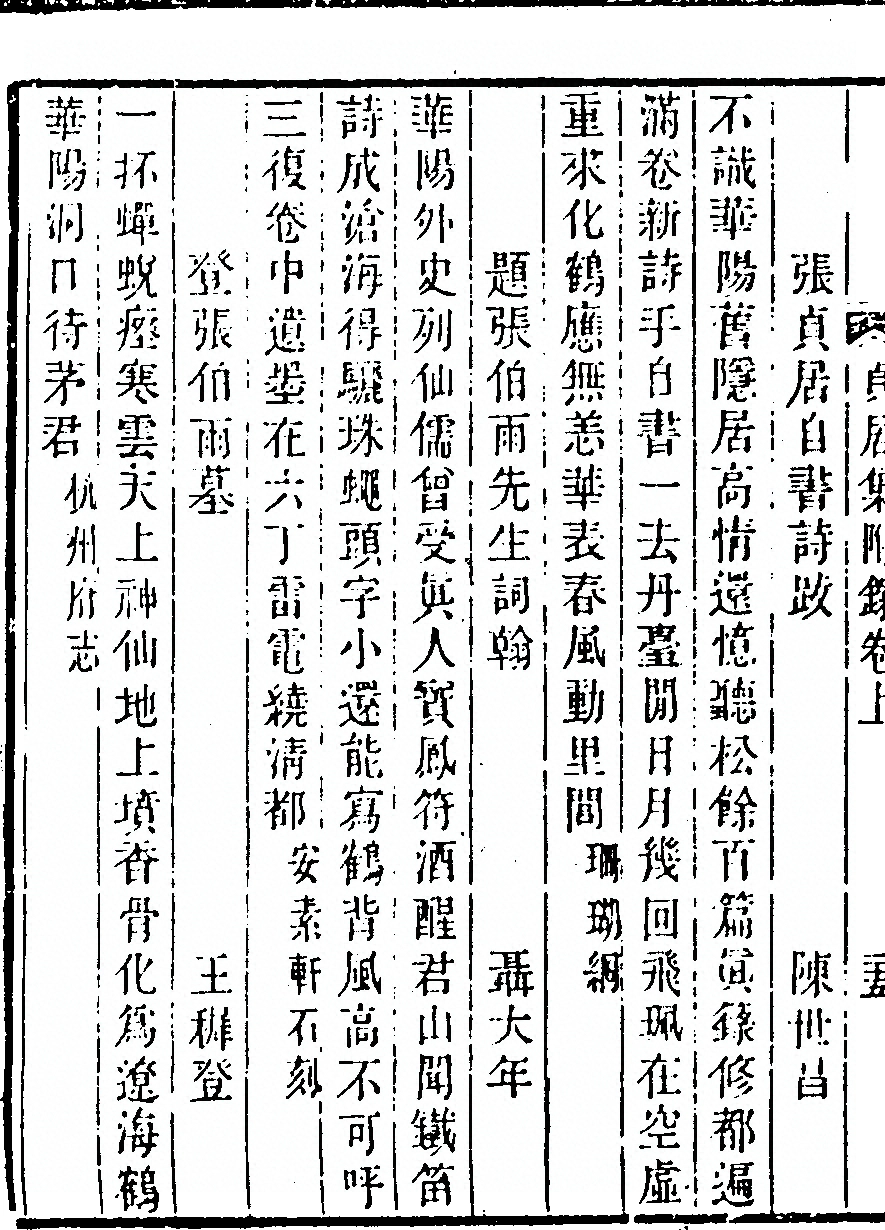 貞居集附錄卷上
張貞居自書詩跋　陳世昌
不識華陽舊隱居高情還憶聽松餘百篇眞錄修都遍
滿卷新詩手自書一去丹臺閒日月幾回飛珮在空虛
重來化鶴應無恙華表春風動里閭珊瑚網
題張伯雨先生詞翰　聶大年
華陽外史列仙儒曾受眞人寶鳳符酒醒君山聞鐵笛
詩成滄海得驪珠蠅頭字小還能寫鶴背風高不可呼
三復卷中遺墨在六丁雷電繞淸都安素軒石刻
登張伯雨墓　王穉登
一抔蟬蛻瘞寒雲天上神仙地上墳香骨化爲遼海鶴
華陽洞口待茅君杭州府志